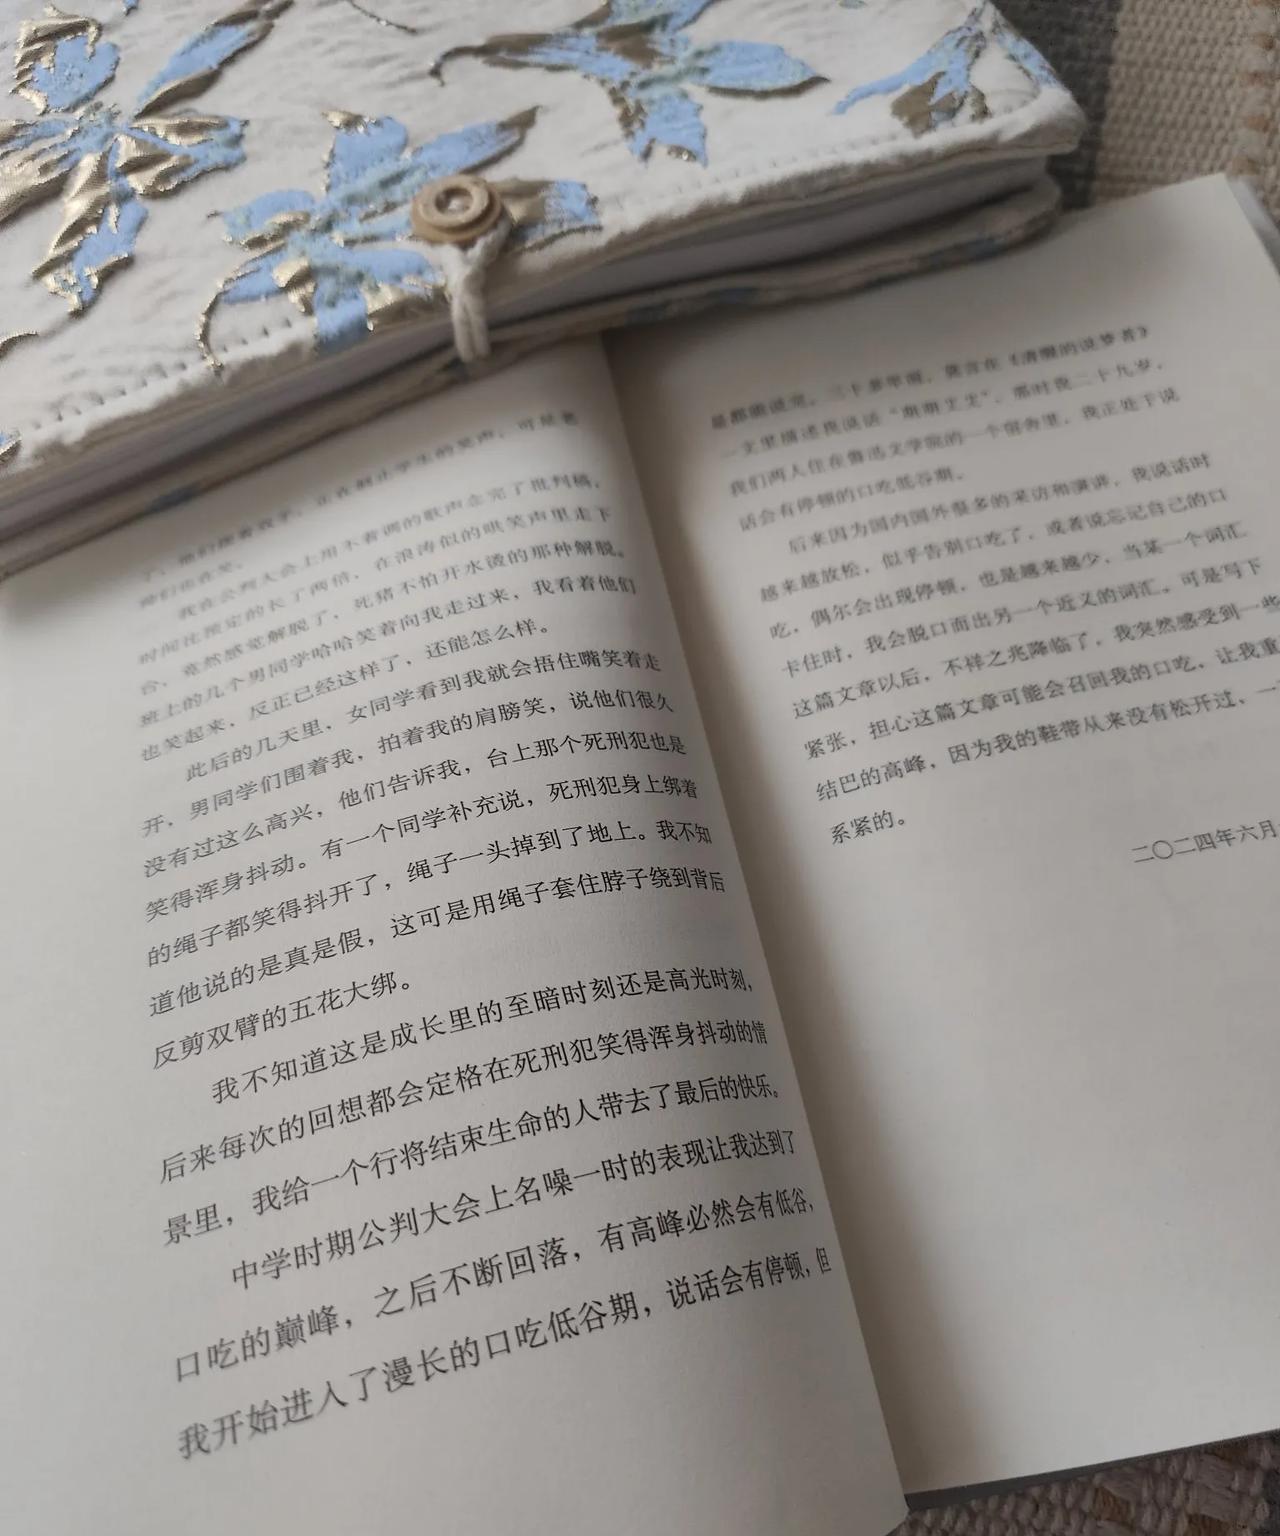 正在制止学生的笑声，可是老
了，他们捂着双手，
师们也在笑。
我在公判大会上用不着调的歌声念完了批判稿，
时间比预定的长了两倍，在浪涛似的哄笑声里走下
台，竟然感觉解脱了，死猪不怕开水烫的那种解脱。
班上的几个男同学哈哈笑着向我走过来，我看着他们
也笑起来，反正已经这样了，还能怎么样。
此后的几天里，女同学看到我就会捂住嘴笑着走
开，男同学们围着我，拍着我的肩膀笑，说他们很久
没有过这么高兴，他们告诉我，台上那个死刑犯也是
笑得浑身抖动。有一个同学补充说，死刑犯身上绑着
的绳子都笑得抖开了，绳子一头掉到了地上。我不知
道他说的是真是假，这可是用绳子套住脖子绕到背后
反剪双臂的五花大绑。
我不知道这是成长里的至暗时刻还是高光时刻，
后来每次的回想都会定格在死刑犯笑得浑身抖动的情
景里，我给一个行将结束生命的人带去了最后的快乐。
中学时期公判大会上名噪一时的表现让我达到了
口吃的巅峰，之后不断回落，有高峰必然会有低谷，
我开始进入了漫长的口吃低谷期，说话会有停顿，但
是都能说完。二十多年前，莫言在《清醒的说梦者》
一文里描述我说话“期期艾艾”，那时我二十九岁，
我们两人住在鲁迅文学院的一个宿舍里，我正处于说
话会有停顿的口吃低谷期。
后来因为国内国外很多的采访和演讲，我说话时
越来越放松，似乎告别口吃了，或者说忘记自己的口
吃，偶尔会出现停顿，也是越来越少，当某一个词汇
卡住时，我会脱口而出另一个近义的词汇。可是写下
这篇文章以后，不祥之兆降临了，我突然感受到一些
紧张，担心这篇文章可能会召回我的口吃，让我重
结巴的高峰，因为我的鞋带从来没有松开过，一
系紧的。
二〇二四年六月